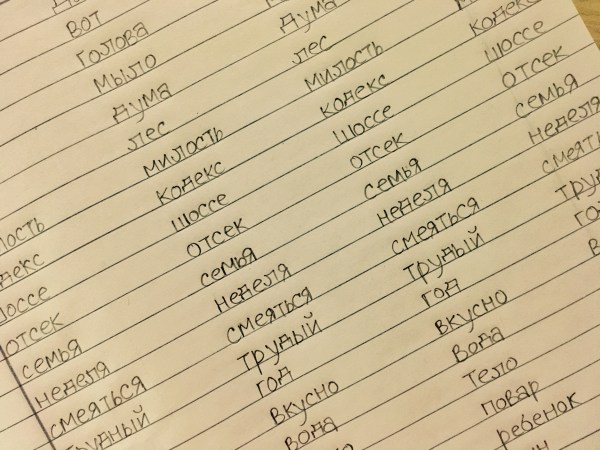 вот
голова
мыло дума
дума лес
лес милость кодекс
милость кодекс шоссе
лость кодекс шоссе отсек
декс шоссе отсек семья
оссе отсек семья неделя
отсек семья неделя смеять
семья неделя смеяться труд
неделя смеяться трудый го
смеяться трудый год в
трудный год вкусно
вкусно вода
вода тело
повар
ребенок